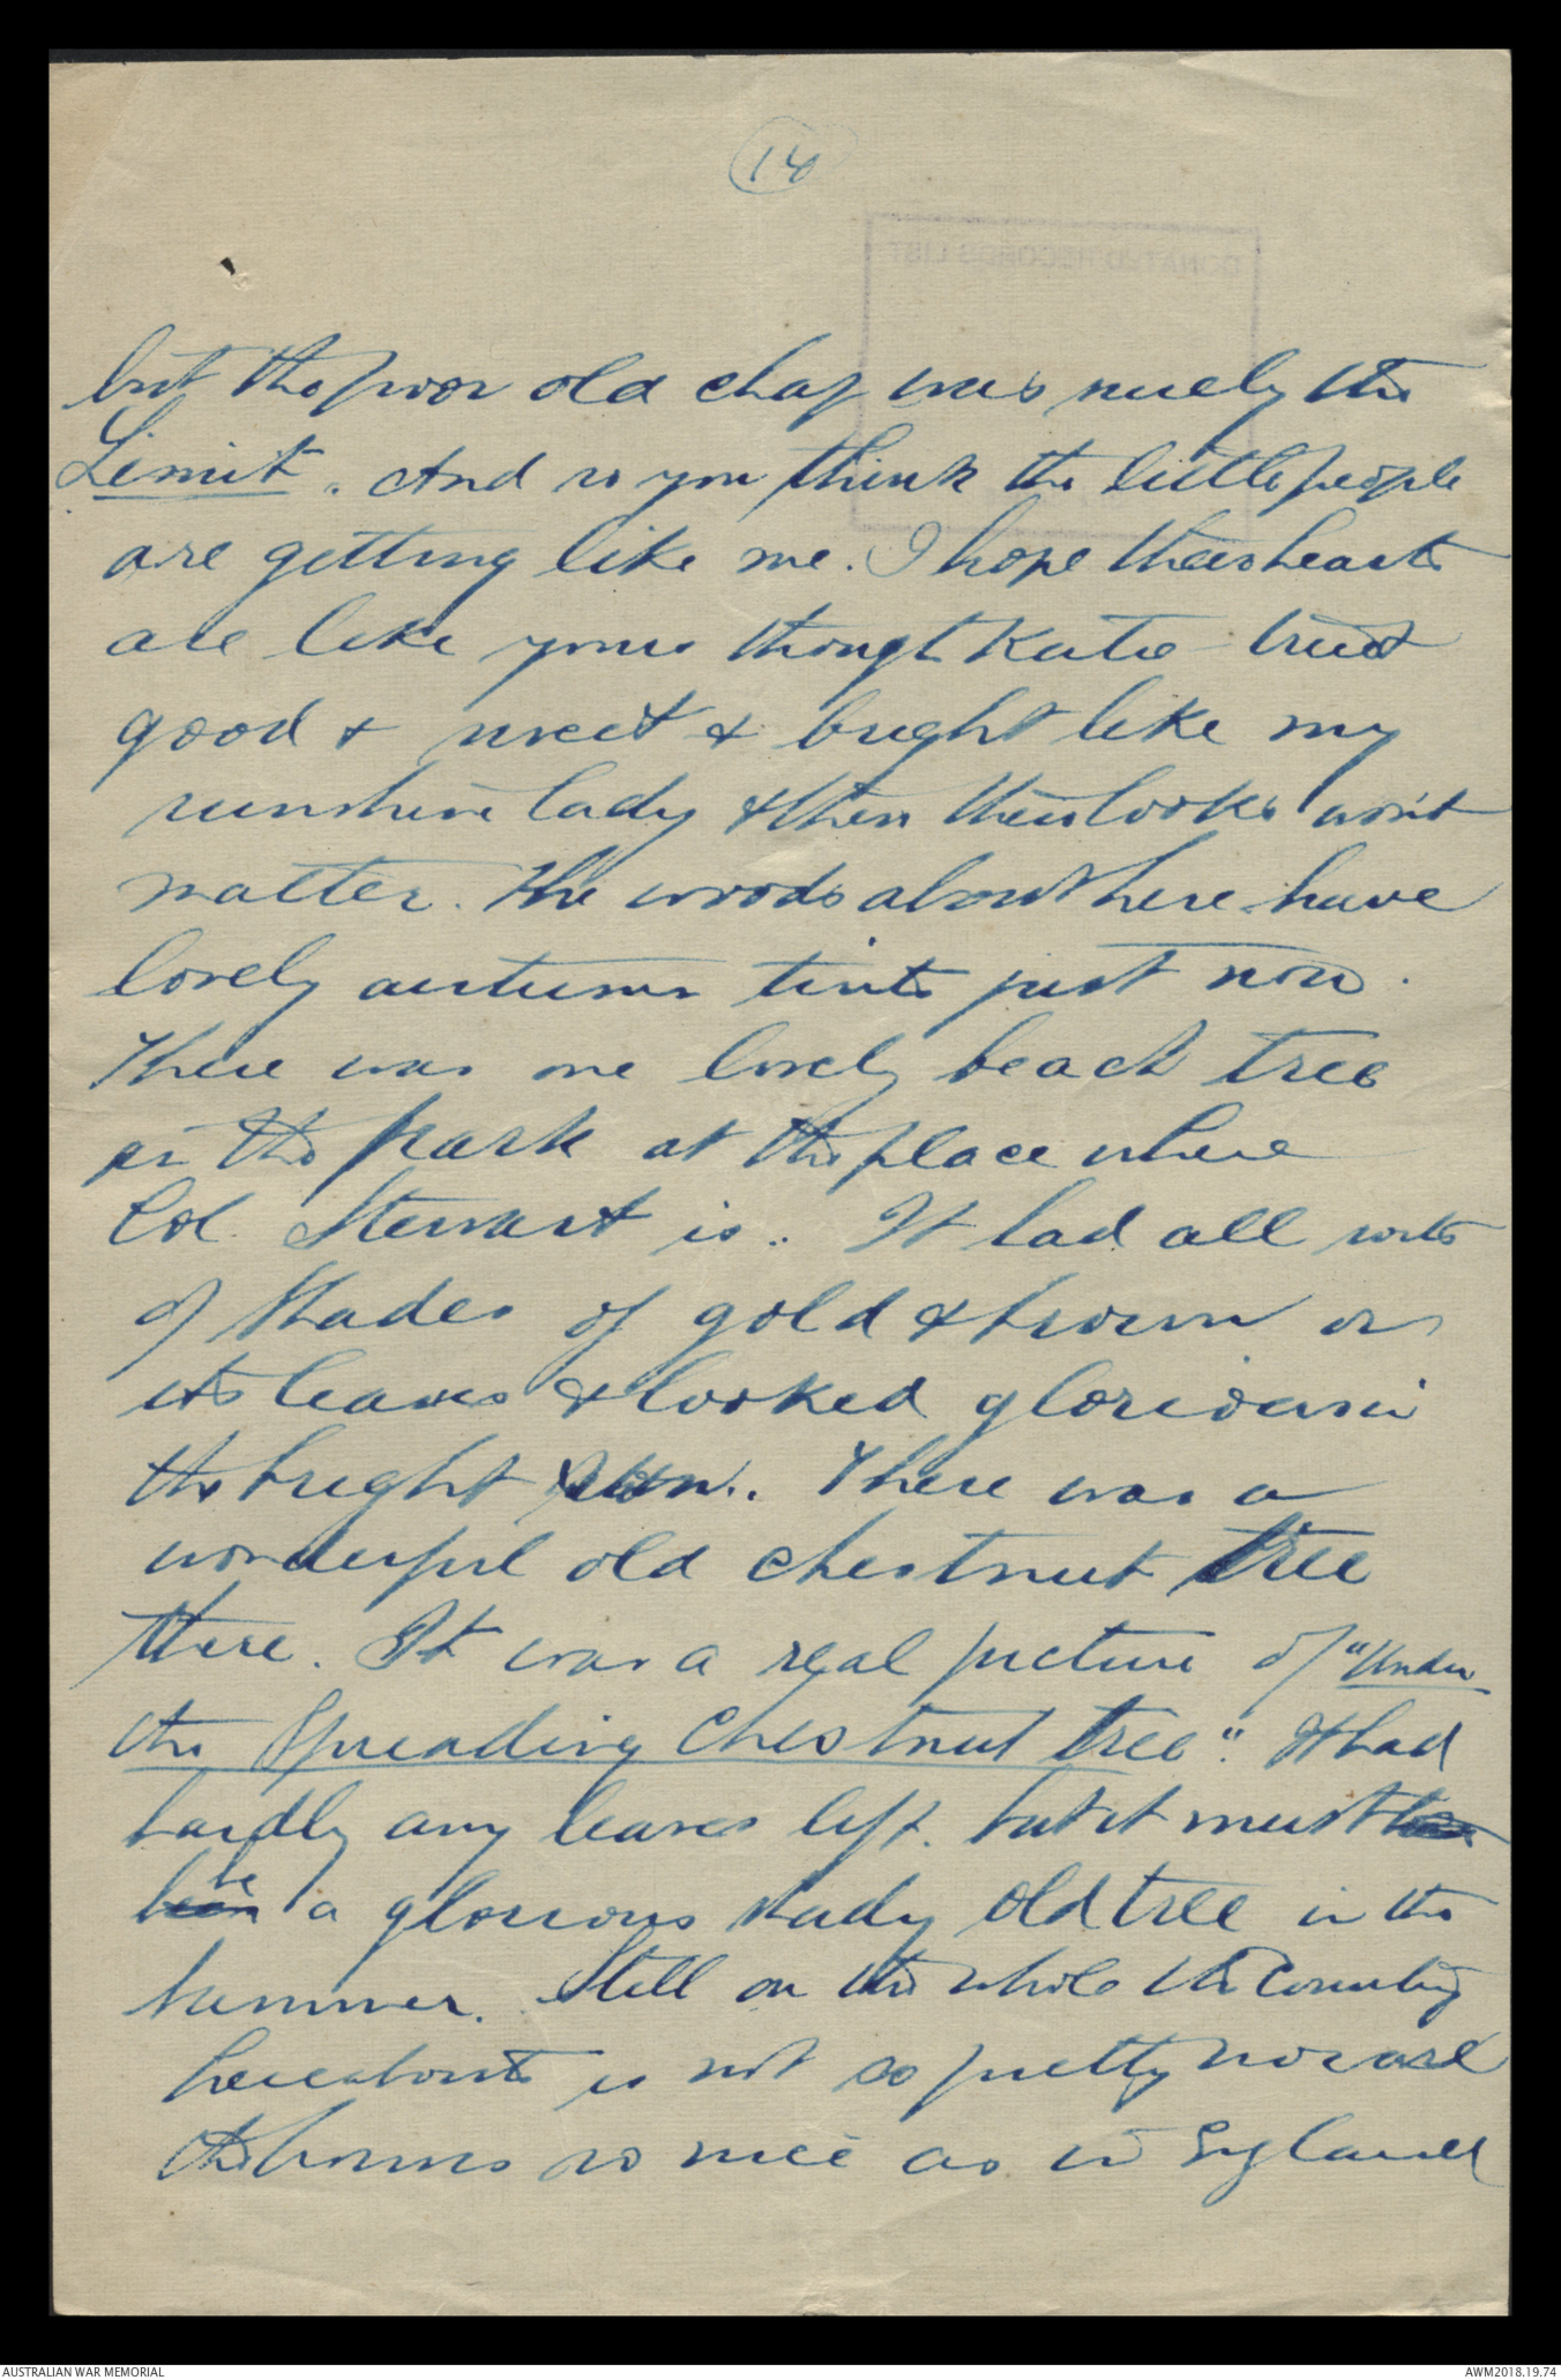 14
DONATED RECORDS LIST
but the poor old chap was surely the
Limit. And so you think the little people
are getting like me. I hope their hearts
are like yours though Katie
good & sweet & bright like my
sunshine lady & then their looks won't
matter. The woods about here have
lovely autumn tints just now.
There was one lovely beach tree
in the park at the place where
Col. Stewart is.. It had all sorts
of shades of gold & brown on
its leaves & looked glorious in
the bright sun.. There was a
wonderful old chestnut tree
there. It was a real picture of "Under
the Spreading Chestnut tree". It had
hardly any leaves left. but it must
be a glorious shady old tree in the
summer. Still on the whole the Country
hereabouts is not so pretty nor are
the homes so nice as in England
AUSTRALIAN WAR MEMORIAL
AWM2018.19.74